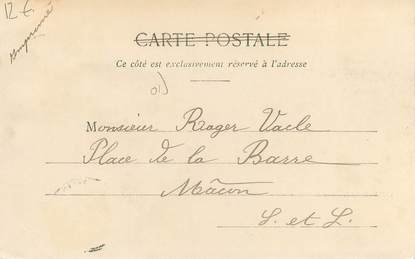 12 €
Imprimé
CARTE POSTALE
Ce côté est exclusivement réservé à l'adresse
Monsieur Roger Vacle
Place de la Barre
Mâcon
S. et L.